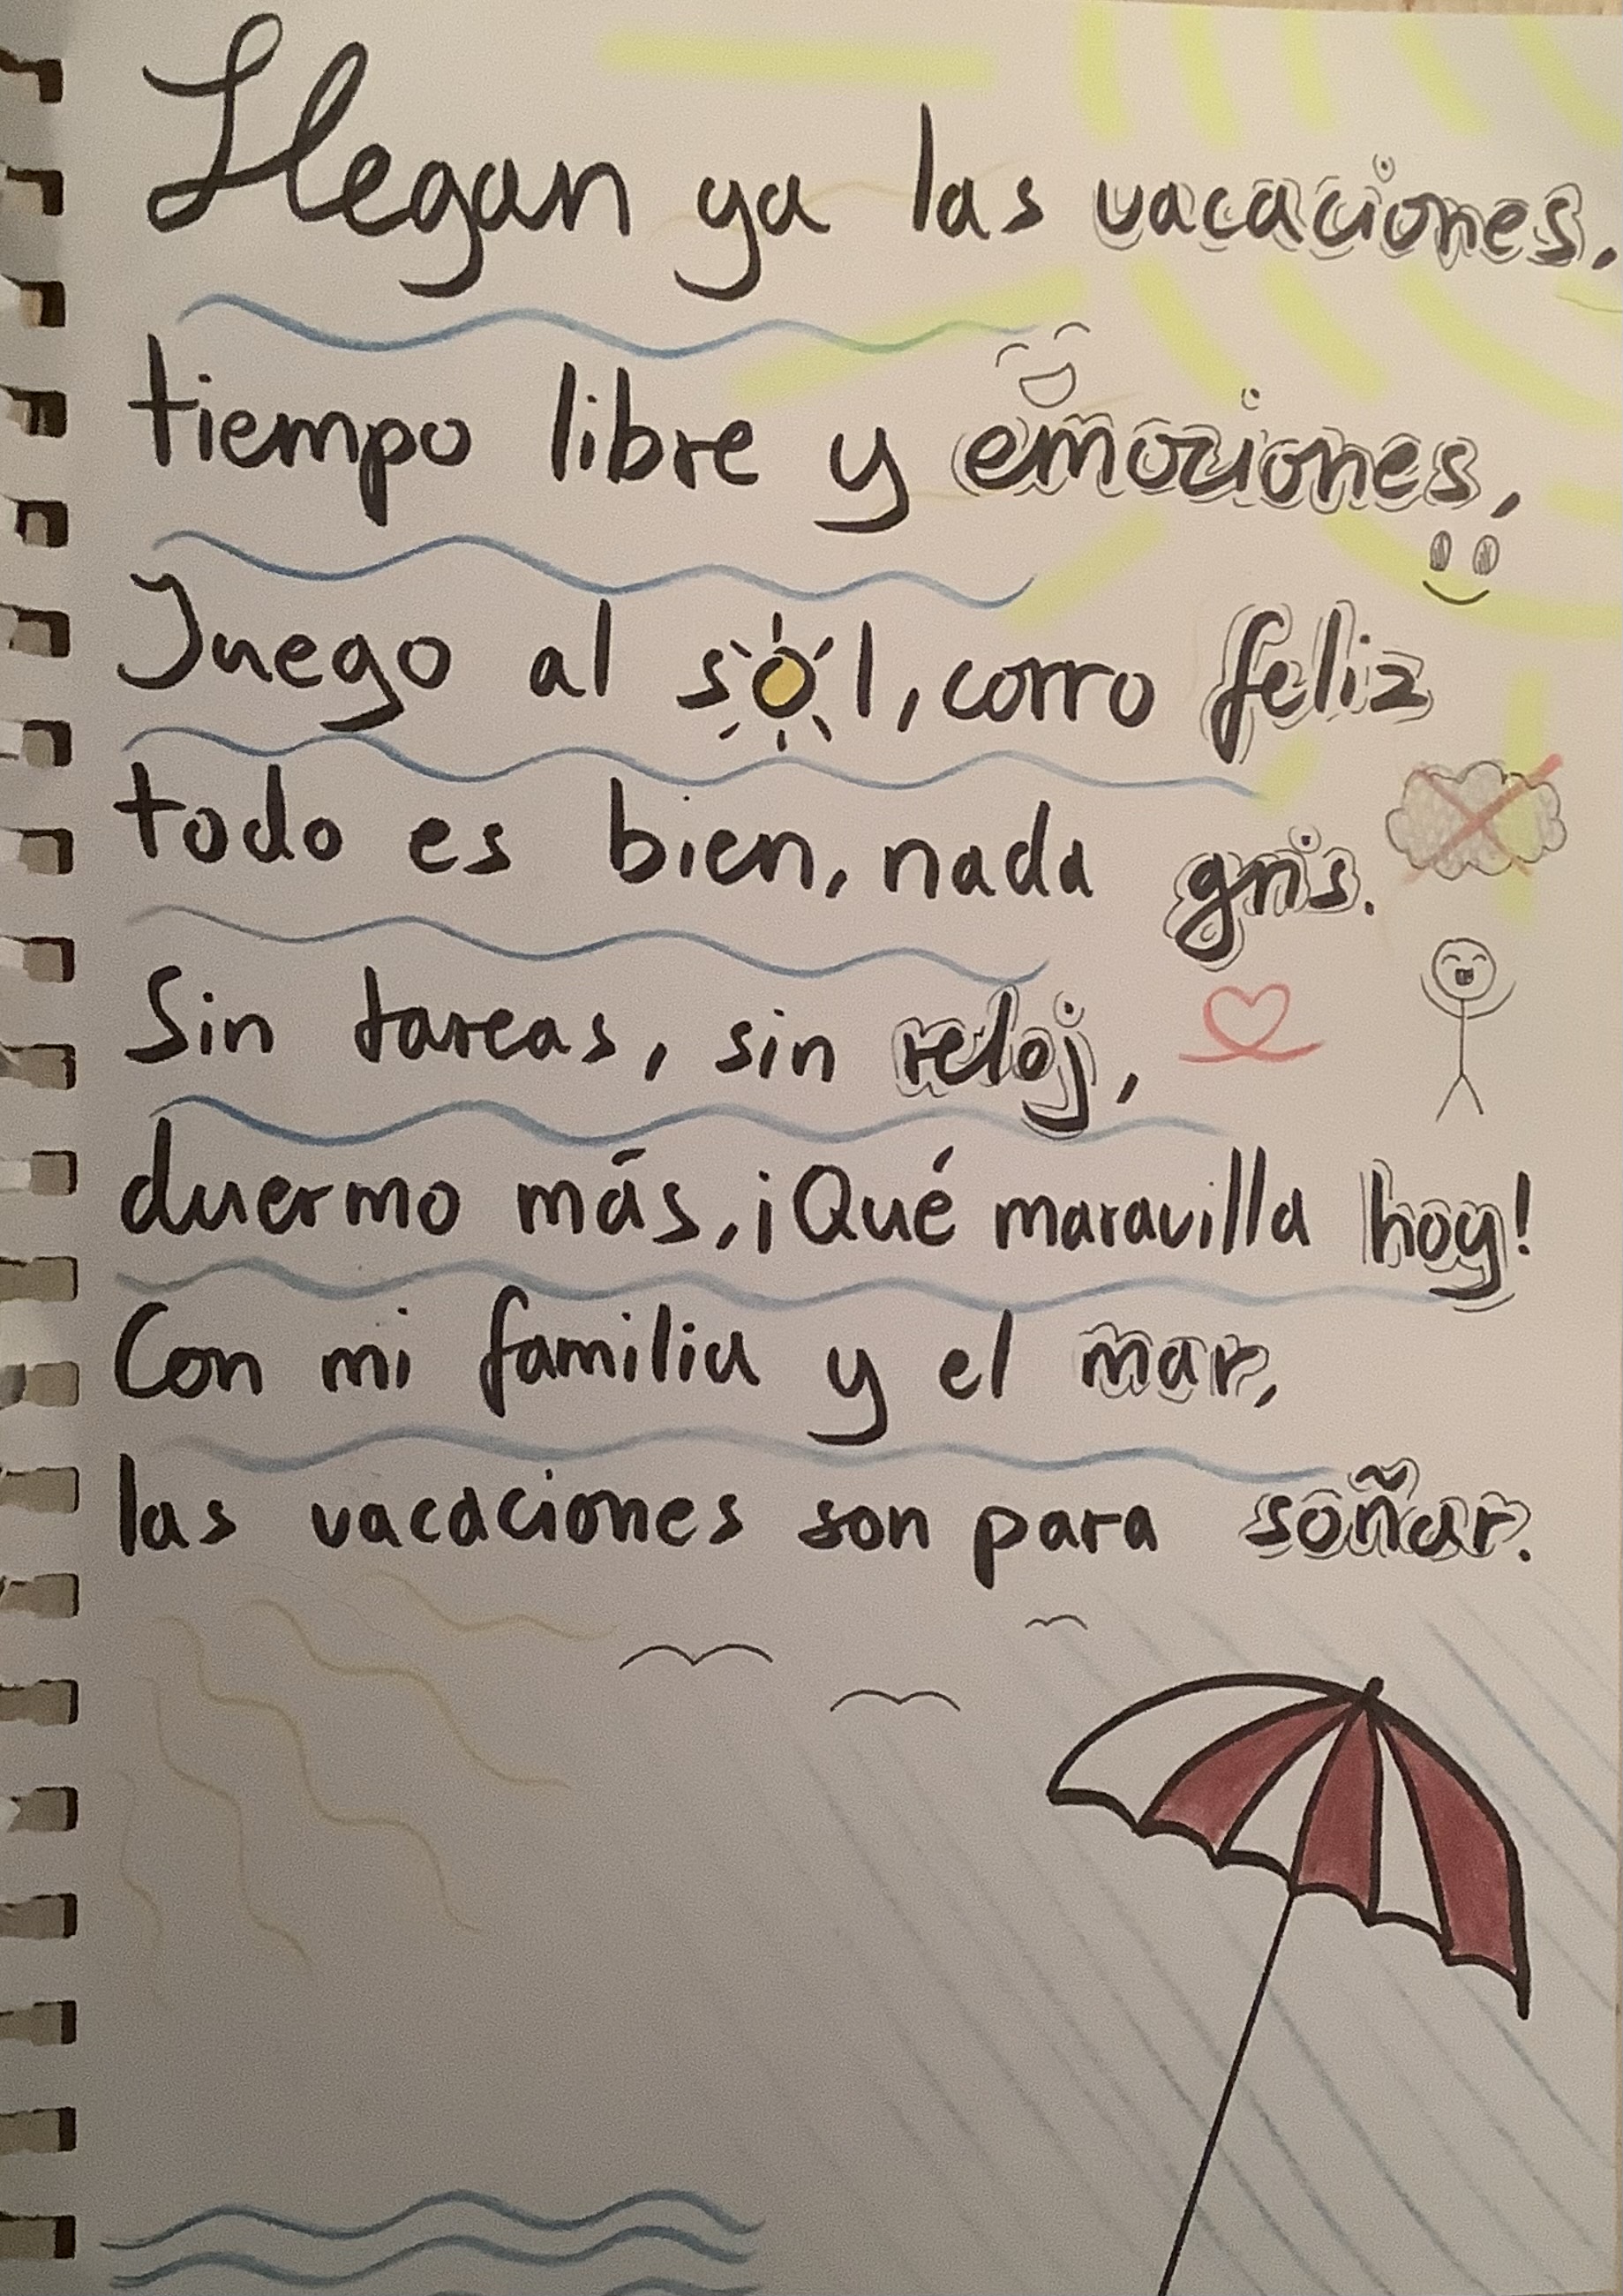 Llegan ya las vacaciones,
tiempo libre y emociones,
Juego al sol, corro feliz
todo es bien, nada gris.
Sin tareas, sin reloj,
duermo más, ¡Qué maravilla hoy!
Con mi familia y el mar,
las vacaciones son para soñar.